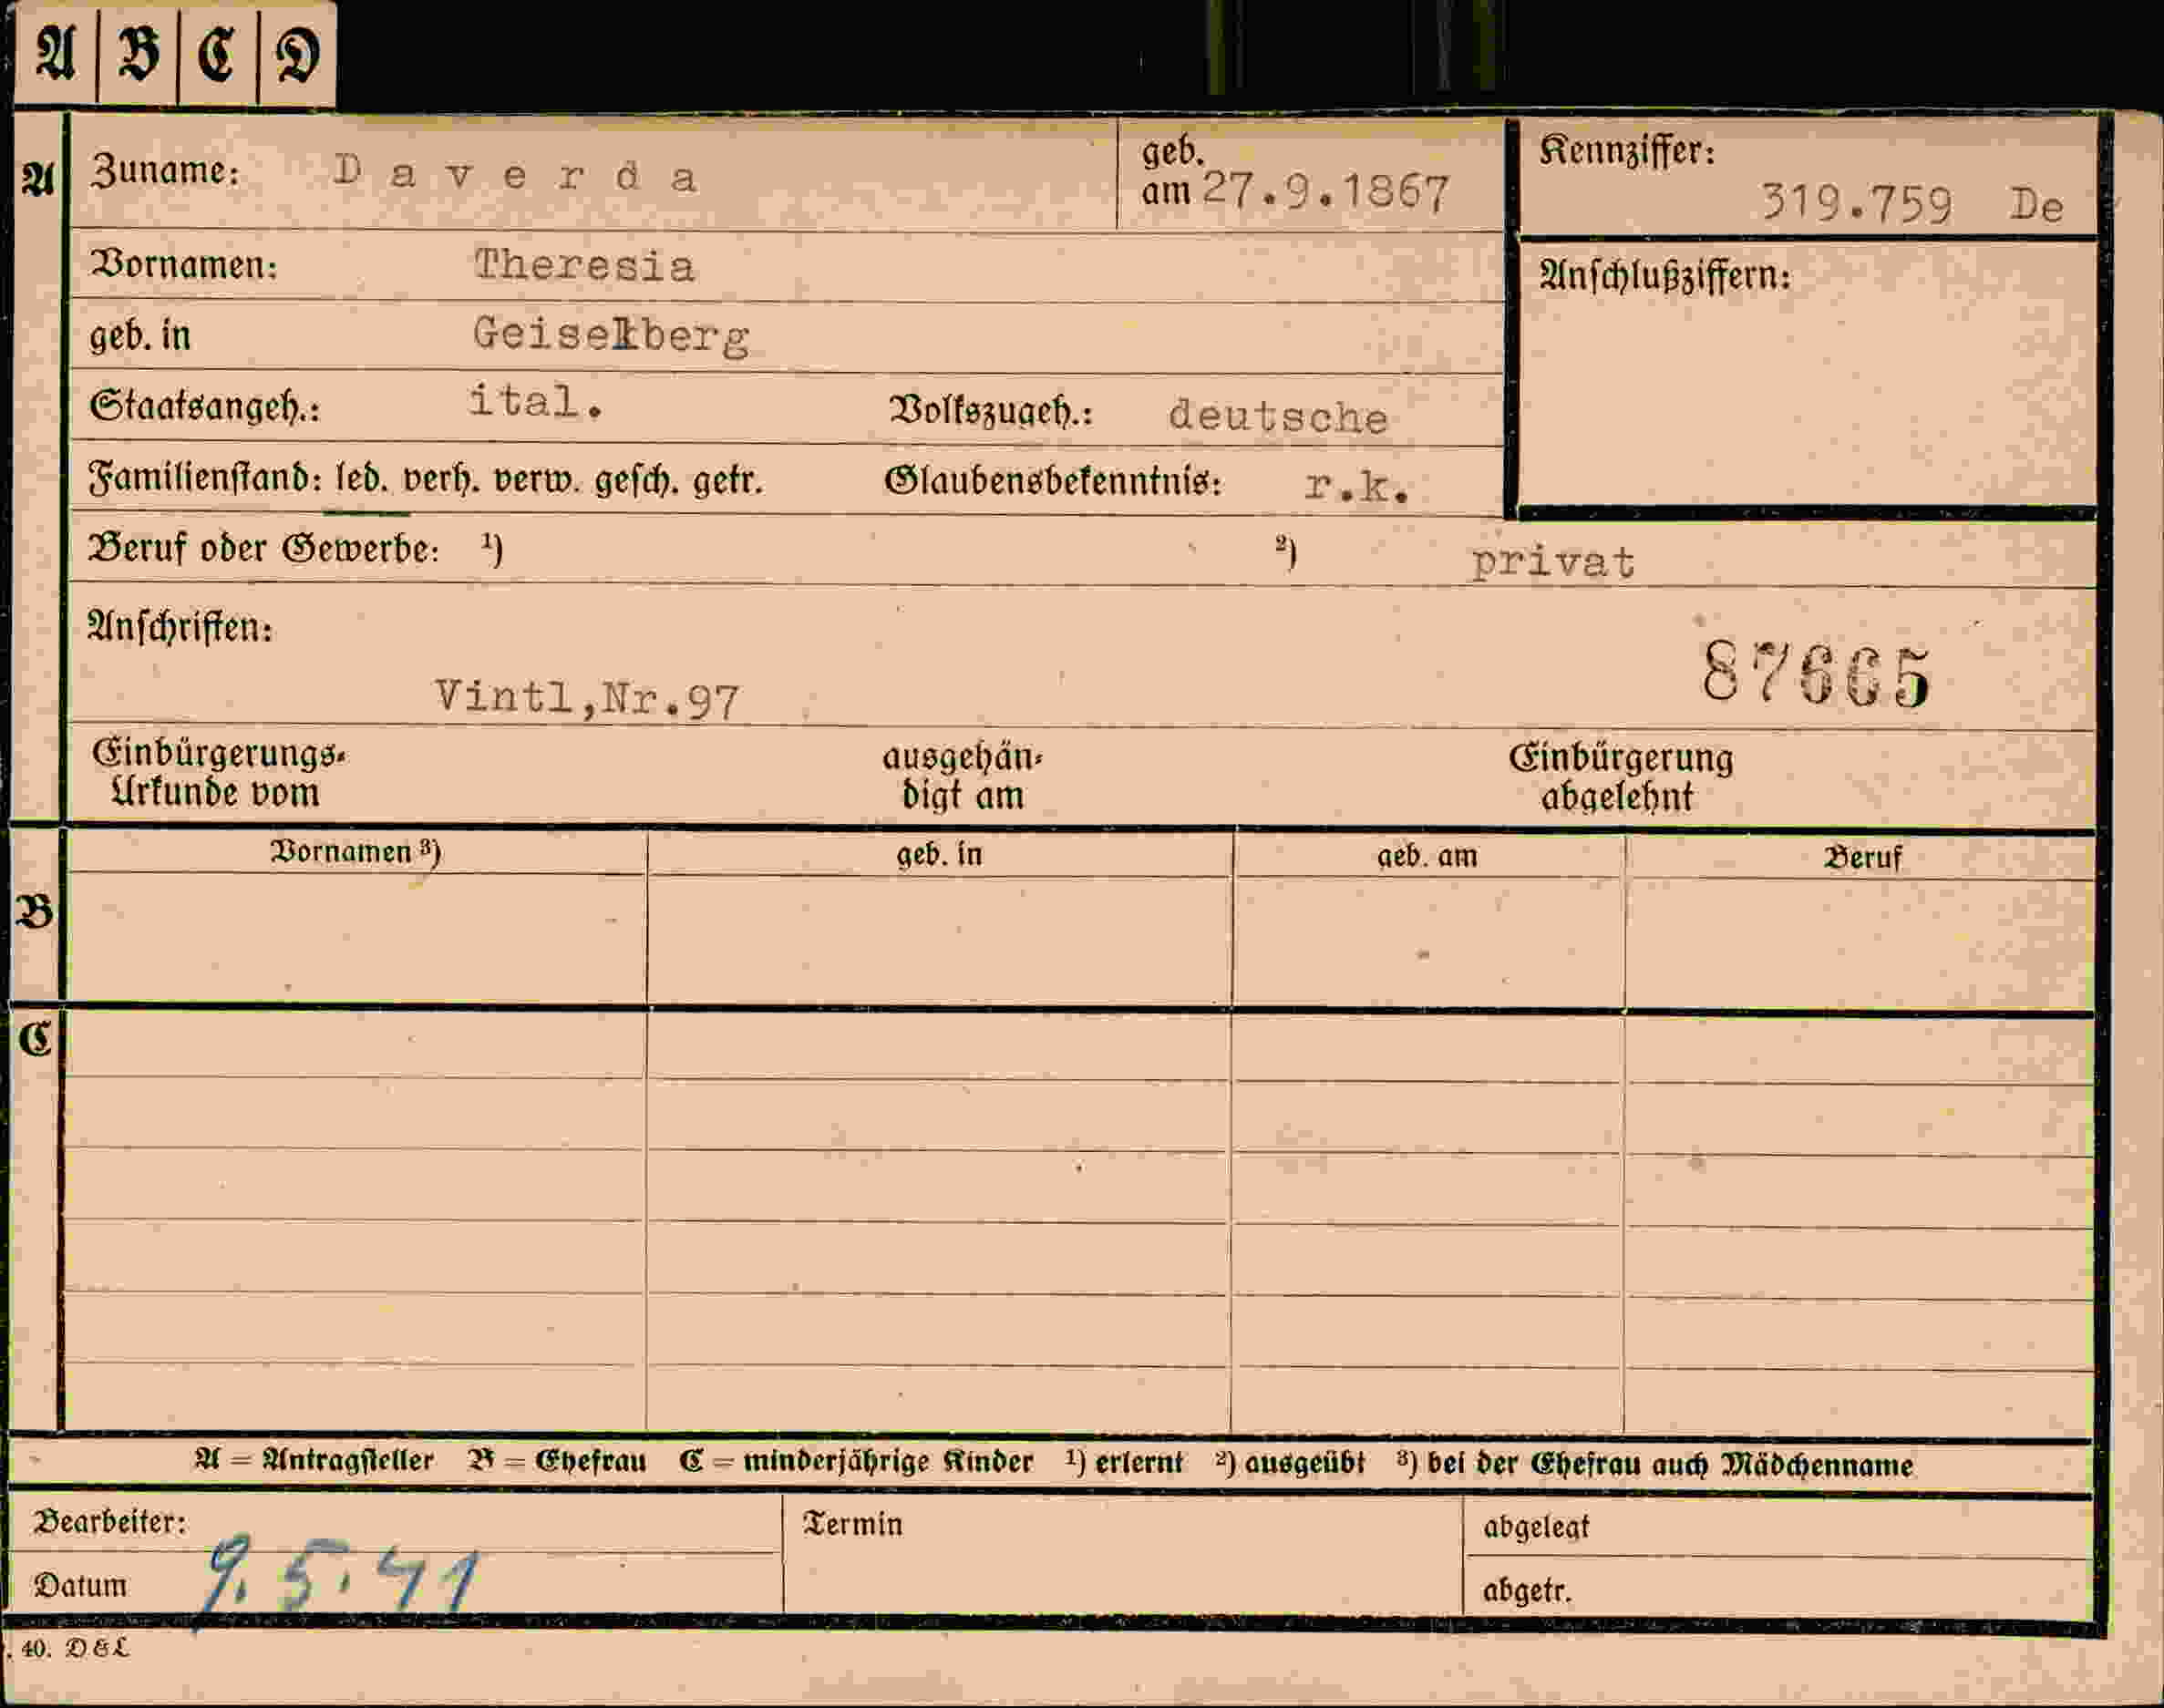 A B C D
A Zuname: Daverda geb. am 27.9.1867 Kennziffer: 319.759 De
Vornamen: Theresia Anschlußziffern:
geb. in Geiselberg
Staatsangeh.: ital. Volkszugeh.: deutsche
Familienstand: led. verh. verw. gesch. getr. Glaubensbekenntnis: r.k.
Beruf oder Gewerbe: ¹) ²) privat
Anschriften:
Vintl,Nr.97 87665
Einbürgerungs- ausgehän- Einbürgerung
Urkunde vom digt am abgelehnt
Vornamen ³) geb. in geb. am Beruf
B
C
A = Antragsteller B = Ehefrau C = minderjährige Kinder ¹) erlernt ²) ausgeübt ³) bei der Ehefrau auch Mädchenname
Bearbeiter: Termin abgelegt
Datum 9.5.41 abgetr.
. 40. D & L